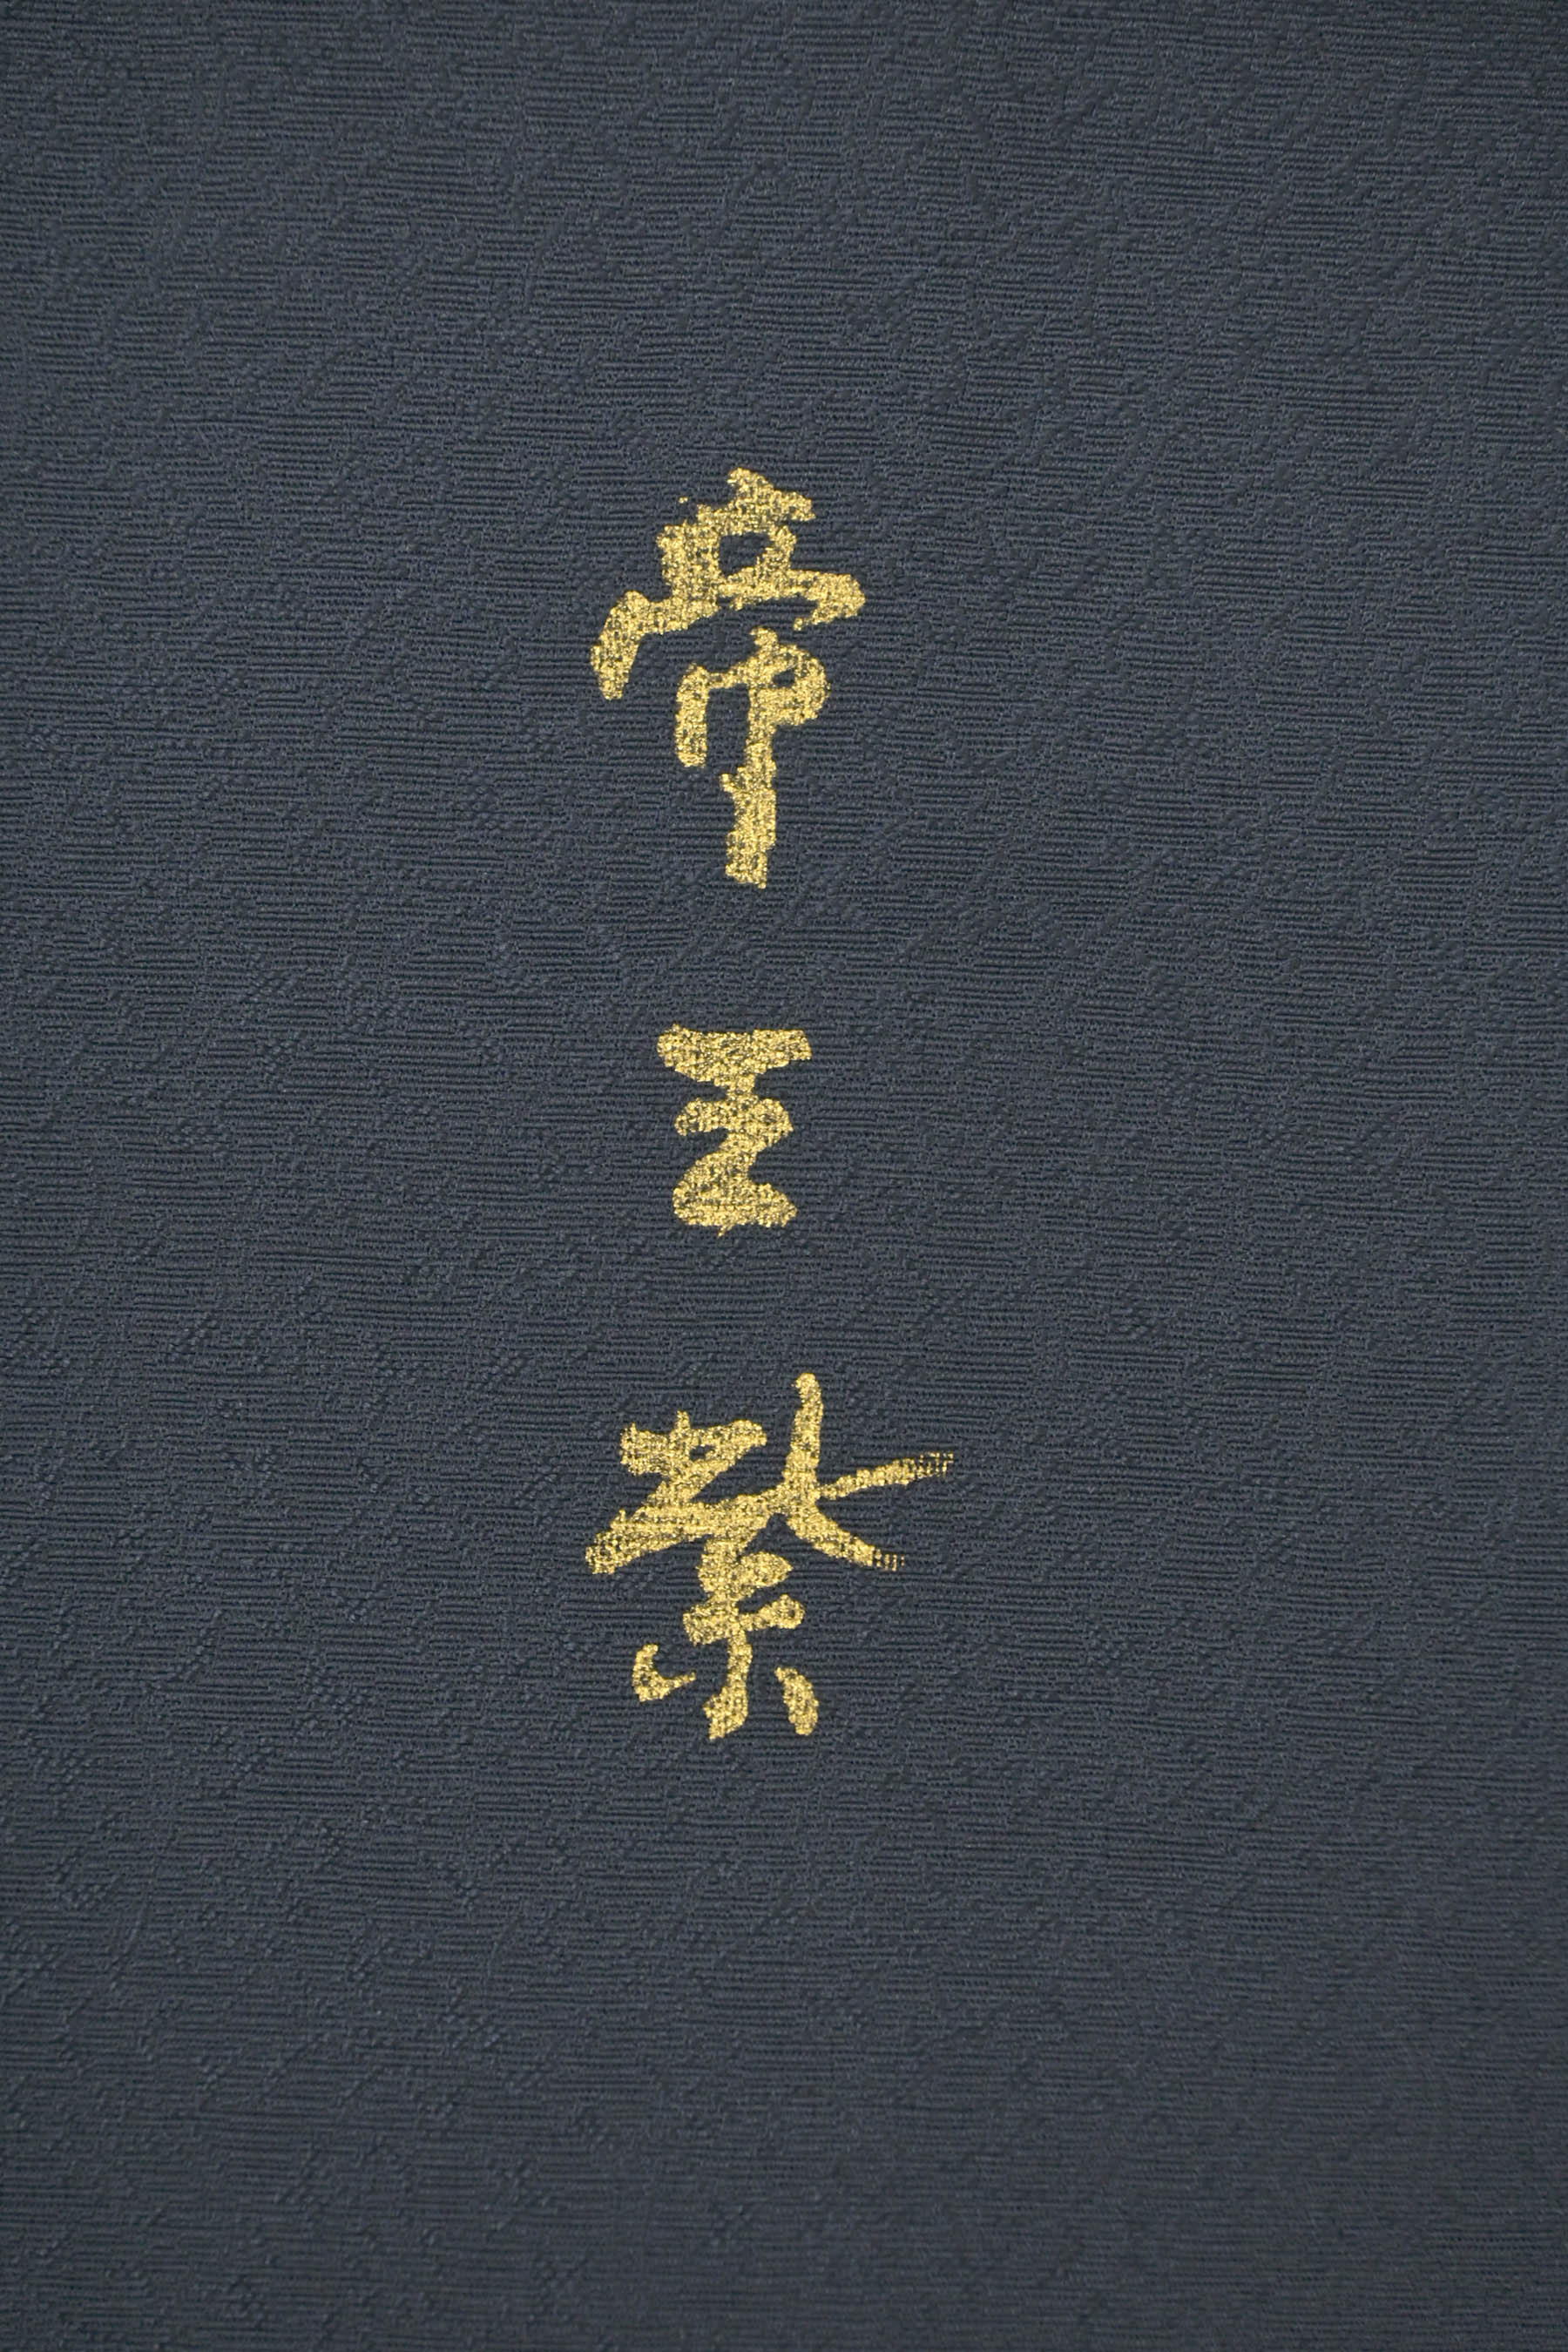 帝王紫